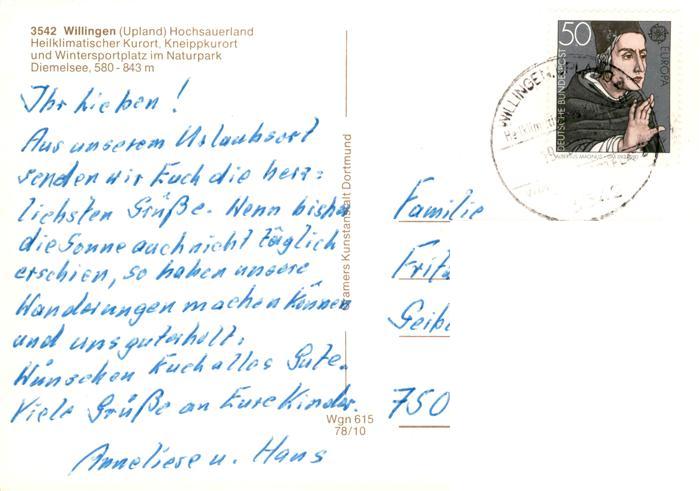 3542 Willingen (Upland) Hochsauerland
Heilklimatischer Kurort, Kneippkurort
und Wintersportplatz im Naturpark
Diemelsee, 580-843 m
Ihr Lieben!
Aus unserem Urlaubsort
senden wir Euch die herz=
lichsten Grüße. Wenn bisher
die Sonne auch nicht täglich
erschien, so haben unsere
Wanderungen machen können
und uns gut erholt.
Wünschen Euch alles Gute.
Viele Grüße an Eure Kinder.
Anneliese u. Hans
Cramers Kunstanstalt Dortmund
Wgn 615
78/10
50
DEUTSCHE BUNDESPOST
EUROPA
ALBERTUS MAGNUS
WILLINGEN
3542
Familie
Fritz
Geib
750